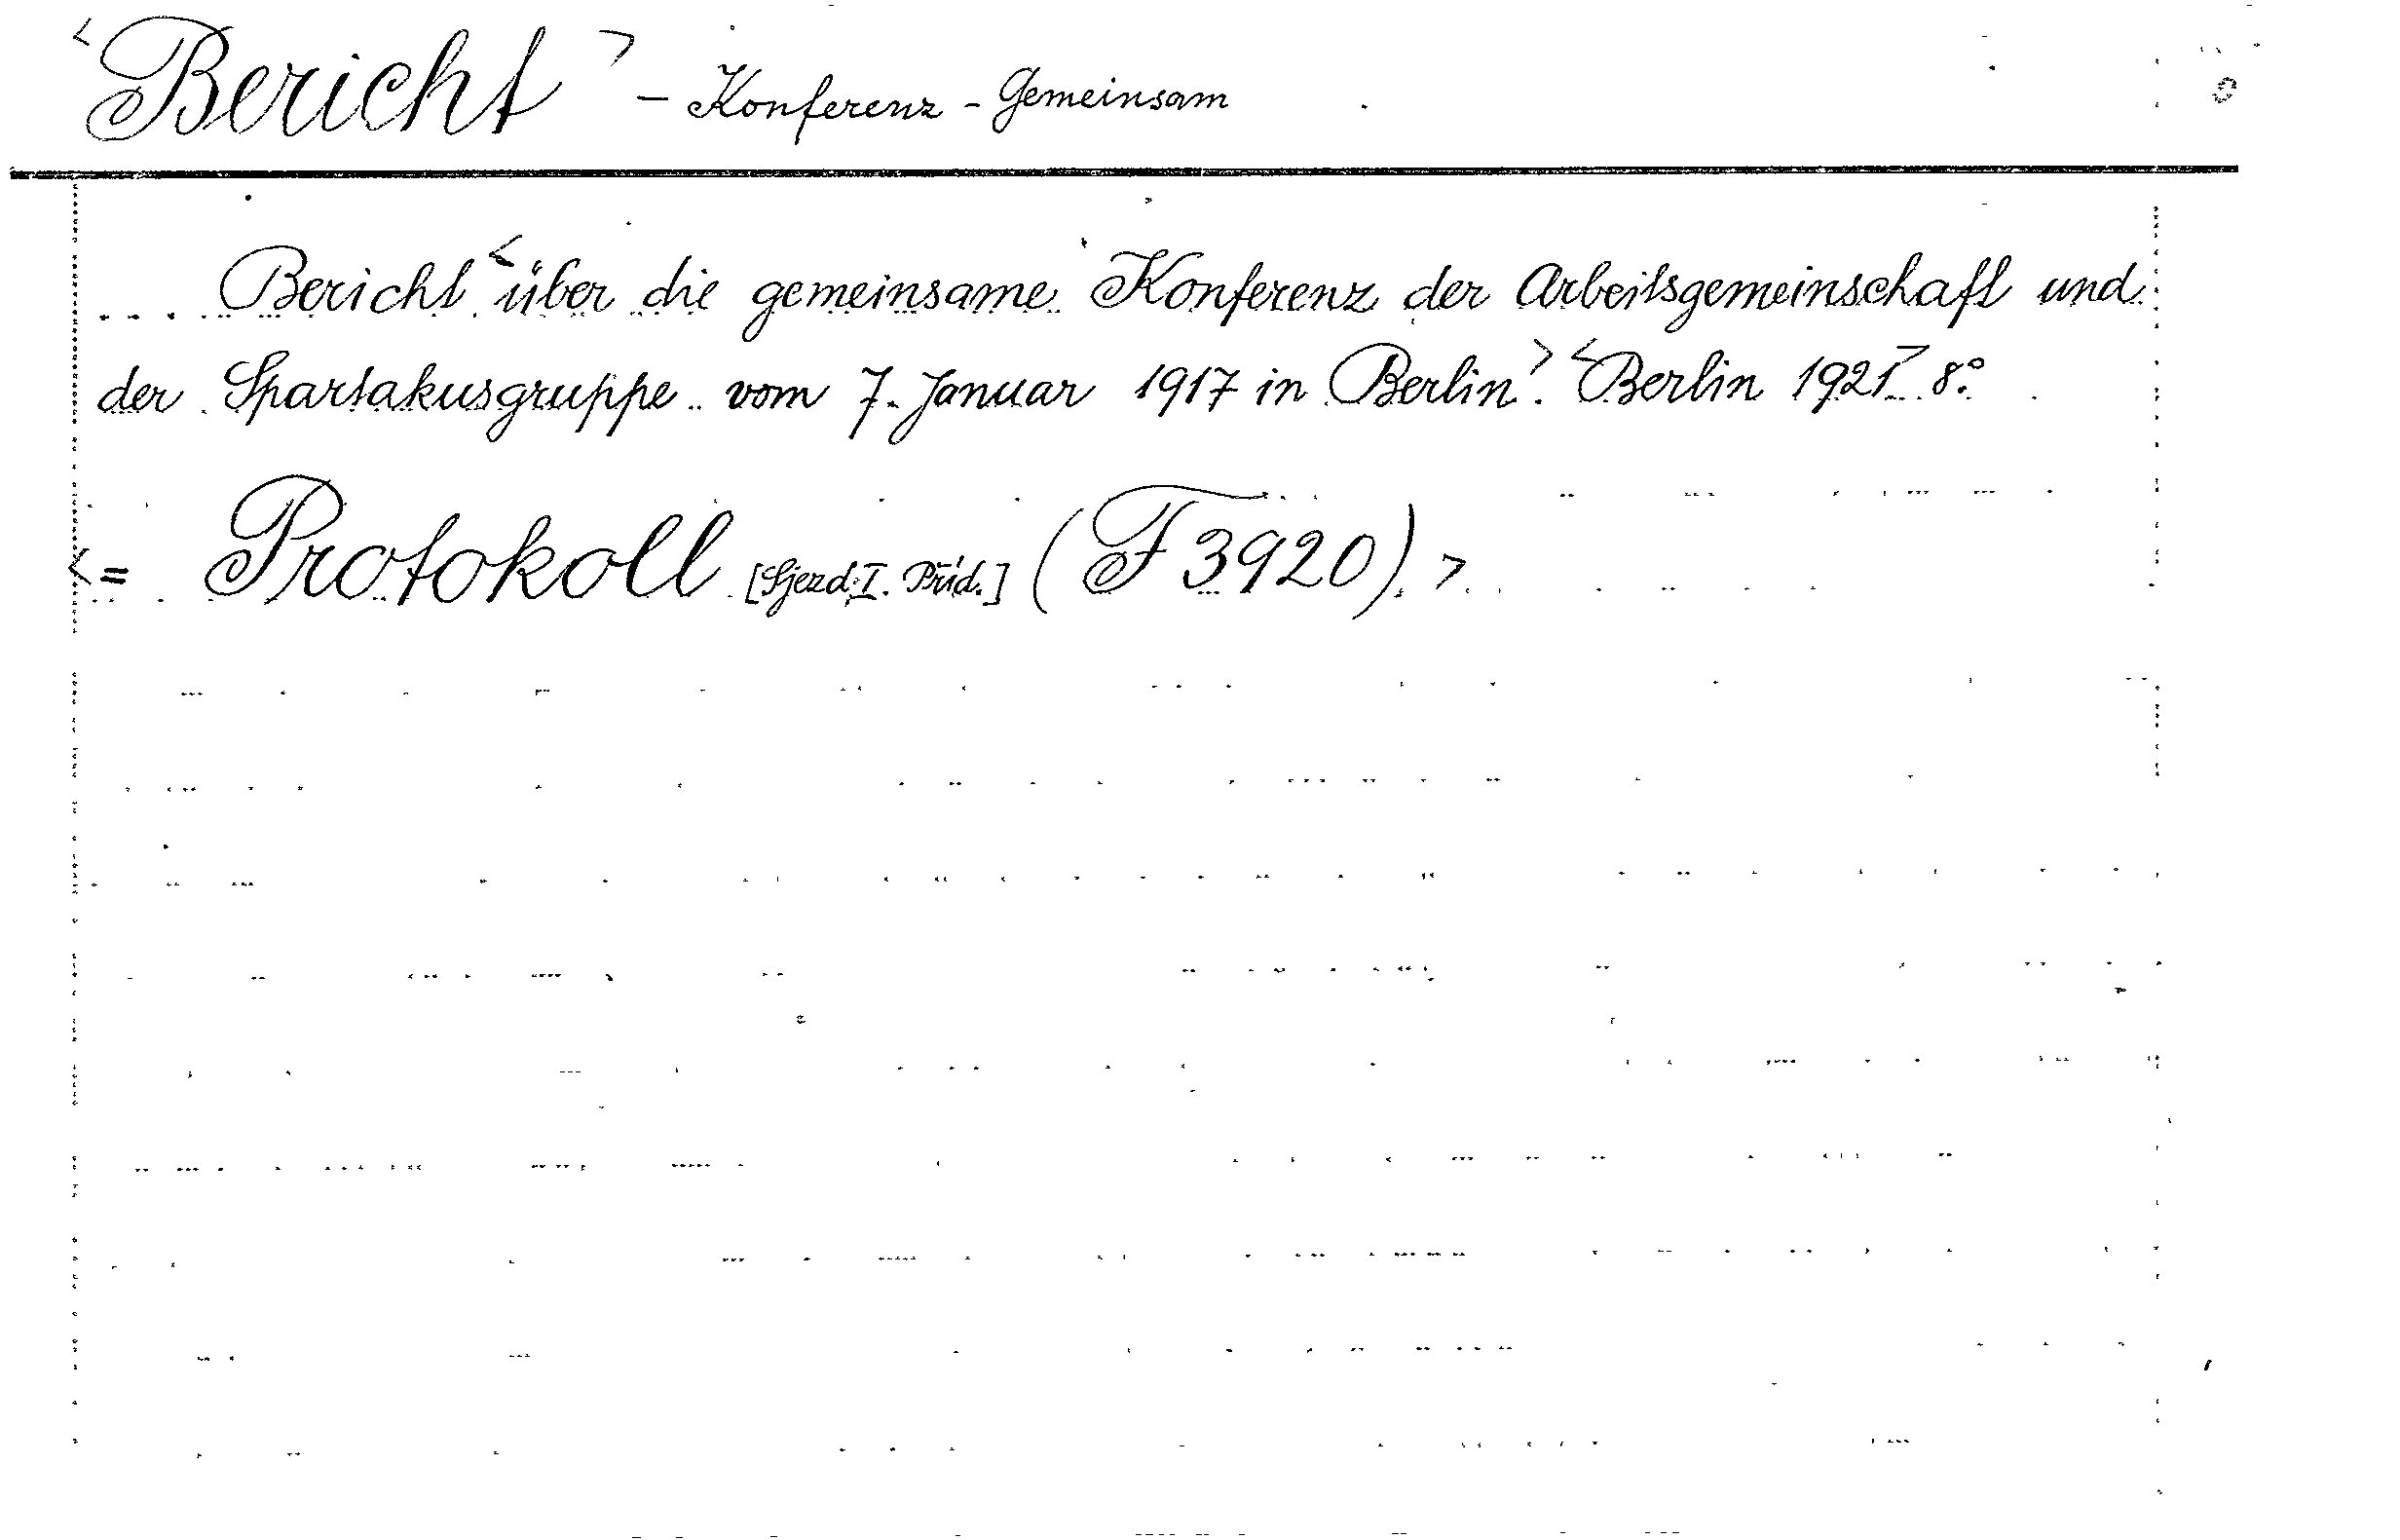 <Bericht> – Konferenz – Gemeinsam
Bericht <über die gemeinsame Konferenz der Arbeitsgemeinschaft und
der Spartakusgruppe vom 7. Januar 1917 in Berlin>. <Berlin 1921> 8.°
<= Protokoll [Sjezd I. Příd.] (F 3920).>